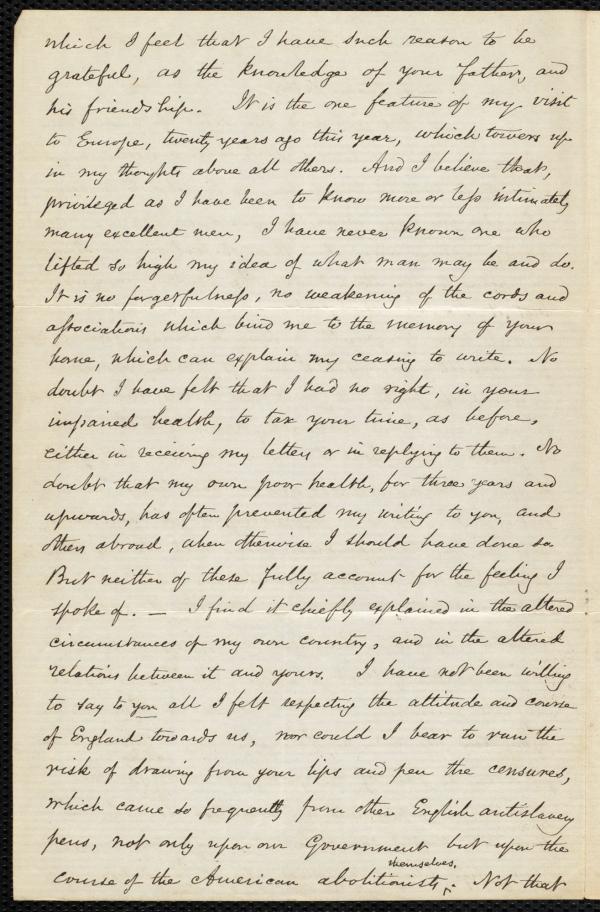 which I feel that I have such reason to be
grateful, as the knowledge of your father, and
his friendship. It is the one feature of my visit
to Europe, twenty years ago this year, which towers up
in my thoughts above all others. And I believe that,
privileged as I have been to know more or less intimately
many excellent men, I have never known one who
lifted so high my idea of what man may be and do.
It is no forgetfulness, no weakening of the cords and
associations which bind me to the memory of your
home, which can explain my ceasing to write. No
doubt I have felt that I had no right, in your
impaired health, to tax your time, as before,
either in receiving my letters or in replying to them. No
doubt that my own poor health, for three years and
upwards, has often prevented my writing to you, and
others abroad, when otherwise I should have done so.
But neither of these fully account for the feeling I
spoke of. — I find it chiefly explained in the altered
circumstances of my own country, and in the altered
relations between it and yours. I have not been willing
to say to you all I felt respecting the attitude and course
of England towards us, nor could I bear to run the
risk of drawing from your lips and pen the censures,
which came so frequently from other English antislavery
pens, not only upon our Government but upon the
course of the American abolitionists themselves. Not that